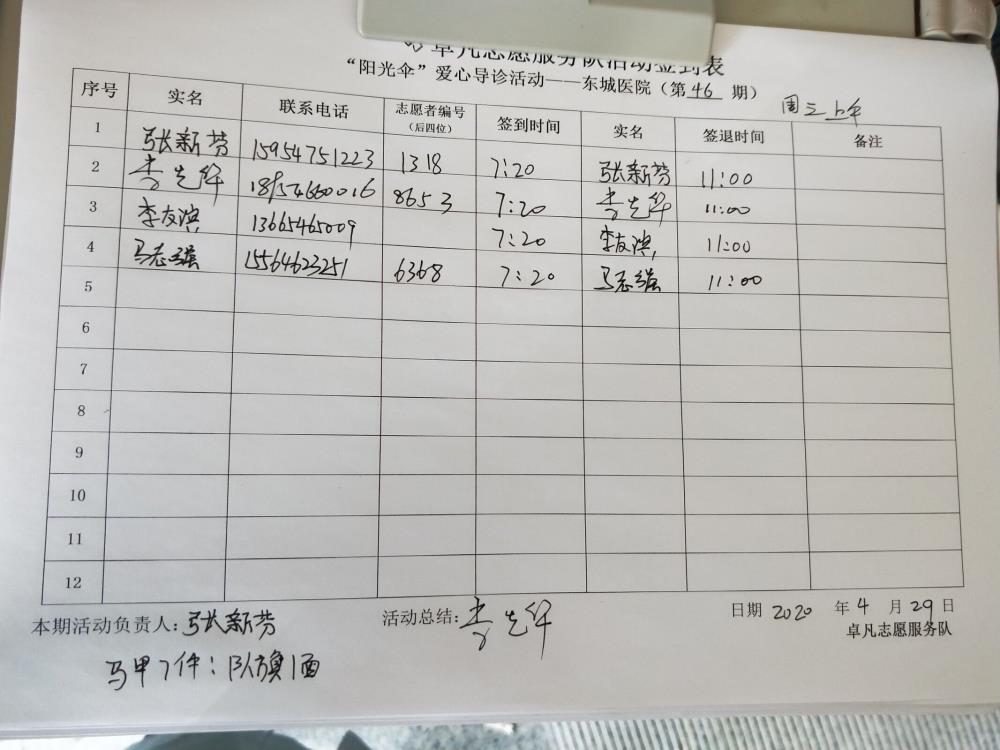 卓凡志愿服务队活动签到表
“阳光伞”爱心导诊活动——东城医院（第 46 期）
周三上午
序号 实名 联系电话 志愿者编号（后四位） 签到时间 实名 签退时间 备注
1 张新芬 15954751223 1318 7:20 张新芬 11:00
2 李先华 18954660016 8653 7:20 李先华 11:00
3 李友滨 13665465009 7:20 李友滨 11:00
4 马志强 15564623251 6368 7:20 马志强 11:00
5
6
7
8
9
10
11
12
本期活动负责人：张新芬 活动总结：李先华 日期 2020 年 4 月 29 日
卓凡志愿服务队
马甲7件：队旗1面